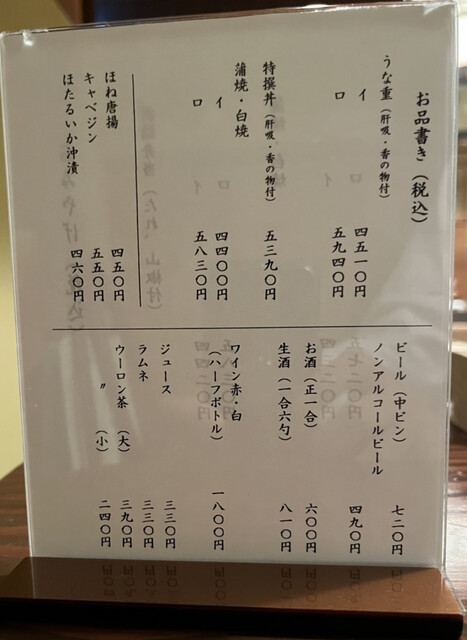 お品書き（税込）
うな重（肝吸・香の物付）
イ 四五一〇円
ロ 五九四〇円
特撰丼（肝吸・香の物付） 五三九〇円
蒲焼・白焼
イ 四四〇〇円
ロ 五八三〇円
ほね唐揚 四五〇円
キャベジン 五五〇円
ほたるいか沖漬 四六〇円
ビール（中ビン） 七二〇円
ノンアルコールビール 四九〇円
お酒（正一合） 六〇〇円
生酒（一合六勺） 八一〇円
ワイン赤・白
（ハーフボトル） 一八〇〇円
ジュース 三三〇円
ラムネ 三三〇円
ウーロン茶（大） 三九〇円
〃（小） 二四〇円